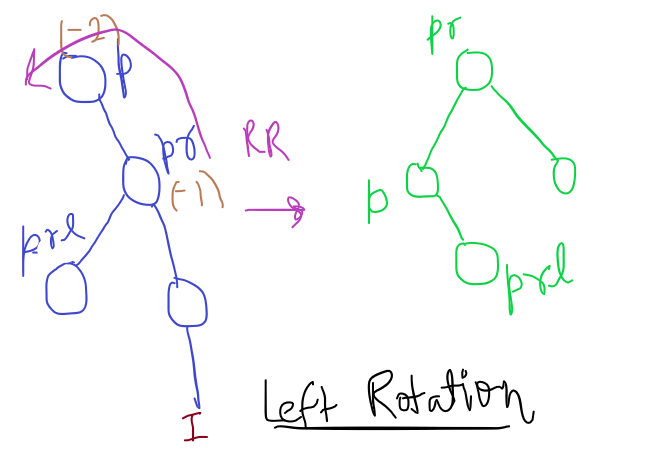 (-2)
p
pr
(-1)
prl
I
RR
pr
p
prl
Left Rotation